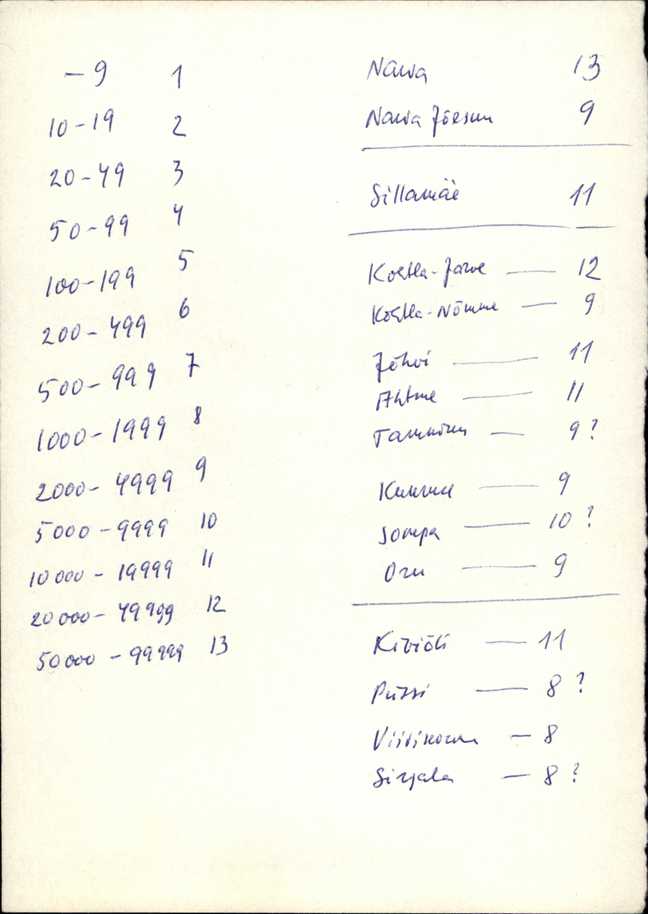 –9 1
10–19 2
20–49 3
50–99 4
100–199 5
200–499 6
500–999 7
1000–1999 8
2000–4999 9
5000–9999 10
10000–19999 11
20000–49999 12
50000–99999 13
Narva 13
Narva Jõesuu 9
Sillamäe 11
Kohtla-Järve — 12
Kohtla-Nõmme — 9
Jõhvi — 11
Ahtme — 11
Tammiku — 9?
Kukruse — 9
Sompa — 10?
Oru — 9
Kiviõli — 11
Püssi — 8?
Viivikonna — 8
Sirgala — 8?